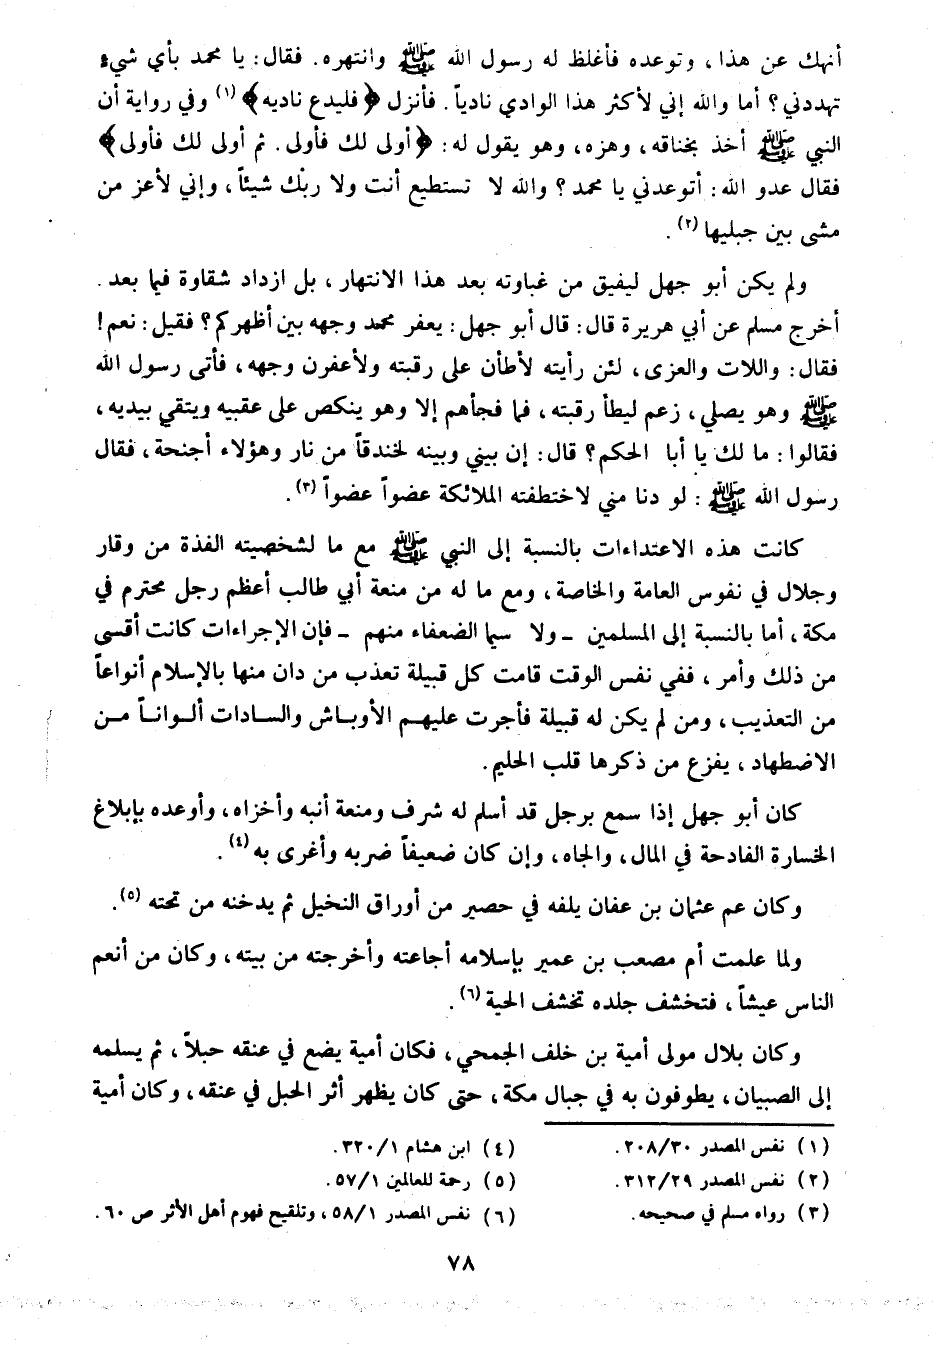 أنهك عن هذا ، وتوعده فأغلظ له رسول الله ﷺ وانتهره. فقال: يا محمد بأي شيء
تهددني؟ أما والله إني لأكثر هذا الوادي نادياً. فأنزل ﴿فليدع ناديه﴾ (١) وفي رواية أن
النبي ﷺ أخذ بخناقه، وهزه، وهو يقول له: ﴿أولى لك فأولى. ثم أولى لك فأولى﴾
فقال عدو الله: أتوعدني يا محمد؟ والله لا تستطيع أنت ولا ربّك شيئاً، وإني لأعز من
مشى بين جبليها (٢).
ولم يكن أبو جهل ليفيق من غباوته بعد هذا الانتهار، بل ازداد شقاوة فيما بعد.
أخرج مسلم عن أبي هريرة قال: قال أبو جهل: يعفر محمد وجهه بين أظهركم؟ فقيل: نعم!
فقال: واللات والعزى، لئن رأيته لأطأن على رقبته ولأعفرن وجهه، فأتى رسول الله
ﷺ وهو يصلي، زعم ليطأ رقبته، فما فجأهم إلا وهو ينكص على عقبيه ويتقي بيديه،
فقالوا: ما لك يا أبا الحكم؟ قال: إن بيني وبينه لخندقاً من نار وهؤلاء أجنحة، فقال
رسول الله ﷺ : لو دنا مني لاختطفته الملائكة عضواً عضواً (٣).
كانت هذه الاعتداءات بالنسبة إلى النبي ﷺ مع ما لشخصيته الفذة من وقار
وجلال في نفوس العامة والخاصة، ومع ما له من منعة أبي طالب أعظم رجل محترم في
مكة، أما بالنسبة إلى المسلمين - ولا سيما الضعفاء منهم - فإن الإجراءات كانت أقسى
من ذلك وأمر، ففي نفس الوقت قامت كل قبيلة تعذب من دان منها بالإسلام أنواعاً
من التعذيب، ومن لم يكن له قبيلة فأجرت عليهم الأوباش والسادات ألواناً من
الاضطهاد، يفزع من ذكرها قلب الحليم.
كان أبو جهل إذا سمع برجل قد أسلم له شرف ومنعة أنبه وأخزاه، وأوعده بإبلاغ
الخسارة الفادحة في المال، والجاه، وإن كان ضعيفاً ضربه وأغرى به (٤).
وكان عم عثمان بن عفان يلفه في حصير من أوراق النخيل ثم يدخنه من تحته (٥).
ولما علمت أم مصعب بن عمير بإسلامه أجاعته وأخرجته من بيته، وكان من أنعم
الناس عيشاً، فتخشف جلده تخشف الحية (٦).
وكان بلال مولى أمية بن خلف الجمحي، فكان أمية يضع في عنقه حبلاً، ثم يسلمه
إلى الصبيان، يطوفون به في جبال مكة، حتى كان يظهر أثر الحبل في عنقه، وكان أمية
(١) نفس المصدر ٢٠٨/٣٠.
(٢) نفس المصدر ٣١٢/٢٩.
(٣) رواه مسلم في صحيحه.
(٤) ابن هشام ٣٢٠/١.
(٥) رحمة للعالمين ٥٧/١.
(٦) نفس المصدر ٥٨/١، وتلقيح فهوم أهل الأثر ص ٦٠.
٧٨